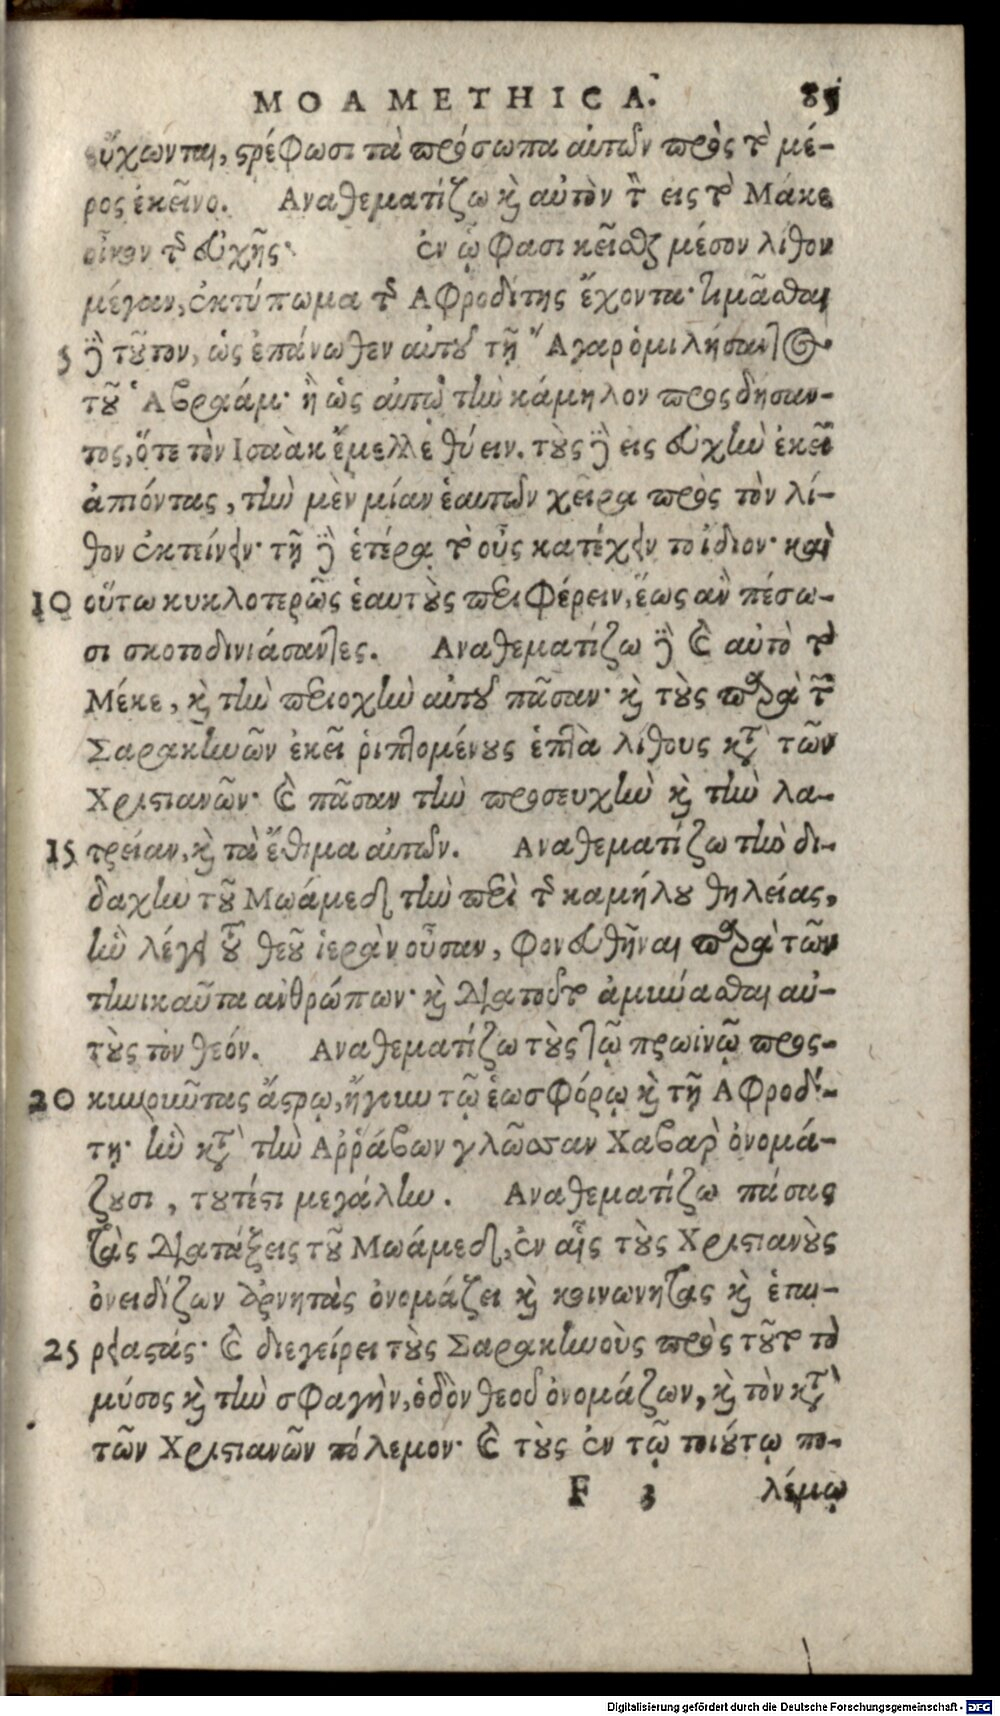 MOAMETHICA. 85
εὔχωνται, στρέφωσι τὰ πρόσωπα αὐτῶν πρὸς τὸ μέ-
ρος ἐκεῖνο. Αναθεματίζω καὶ αὐτὸν τὸν εἰς τὸ Μάκε
οἶκον τῆς εὐχῆς· ἐν ᾧ φασι κεῖσθαι μέσον λίθον
μέγαν, ἐκτύπωμα τῆς Αφροδίτης ἔχοντα· τιμᾶσθαι
5 δὲ τοῦτον, ὡς ἐπάνωθεν αὐτοῦ τῇ Ἄγαρ ὁμιλήσαντος
τοῦ Ἀβραάμ· ἢ ὡς αὐτῷ τὴν κάμηλον προσδήσαν-
τος, ὅτε τὸν Ισαὰκ ἔμελλε θύειν. τοὺς δὲ εἰς εὐχὴν ἐκεῖ
ἀπιόντας, τὴν μὲν μίαν ἑαυτῶν χεῖρα πρὸς τὸν λί-
θον ἐκτείνειν· τῇ δὲ ἑτέρᾳ τὸ οὖς κατέχειν τὸ ἴδιον· καὶ
10 οὕτω κυκλοτερῶς ἑαυτοὺς περιφέρειν, ἕως ἂν πέσω-
σι σκοτοδινιάσαντες. Αναθεματίζω δὲ καὶ αὐτὸ τὸ
Μέκε, καὶ τὴν περιοχὴν αὐτοῦ πᾶσαν· καὶ τοὺς παρὰ τῶν
Σαρακηνῶν ἐκεῖ ῥιπτομένους ἑπτὰ λίθους κατὰ τῶν
Χριστιανῶν· καὶ πᾶσαν τὴν προσευχὴν καὶ τὴν λα-
15 τρείαν, καὶ τὰ ἔθιμα αὐτῶν. Αναθεματίζω τὴν δι-
δαχὴν τοῦ Μωάμεδ τὴν περὶ τῆς καμήλου θηλείας,
ἣν λέγει τοῦ θεοῦ ἱερὰν οὖσαν, φονευθῆναι παρὰ τῶν
τηνικαῦτα ἀνθρώπων· καὶ διὰ τοῦτο ἀμύνασθαι αὐ-
τοὺς τὸν θεόν. Αναθεματίζω τοὺς τῷ πρωϊνῷ προσ-
20 κυνοῦντας ἄστρῳ, ἤγουν τῷ ἑωσφόρῳ καὶ τῇ Αφροδί-
τῃ· ἣν κατὰ τὴν Αῤῥάβων γλῶσσαν Χαβαρ ὀνομά-
ζουσι, τουτέστι μεγάλην. Αναθεματίζω πάσας
τὰς διατάξεις τοῦ Μωάμεδ, ἐν αἷς τοὺς Χριστιανοὺς
ὀνειδίζων ἀρνητὰς ὀνομάζει καὶ κοινωνητὰς καὶ ἑται-
25 ρειαστάς· καὶ διεγείρει τοὺς Σαρακηνοὺς πρὸς τοῦτο τὸ
μύσος καὶ τὴν σφαγὴν, ὁδὸν θεοῦ ὀνομάζων, καὶ τὸν κατὰ
τῶν Χριστιανῶν πόλεμον· καὶ τοὺς ἐν τῷ τοιούτῳ πο-
F 3 λέμῳ
Digitalisierung gefördert durch die Deutsche Forschungsgemeinschaft - DFG